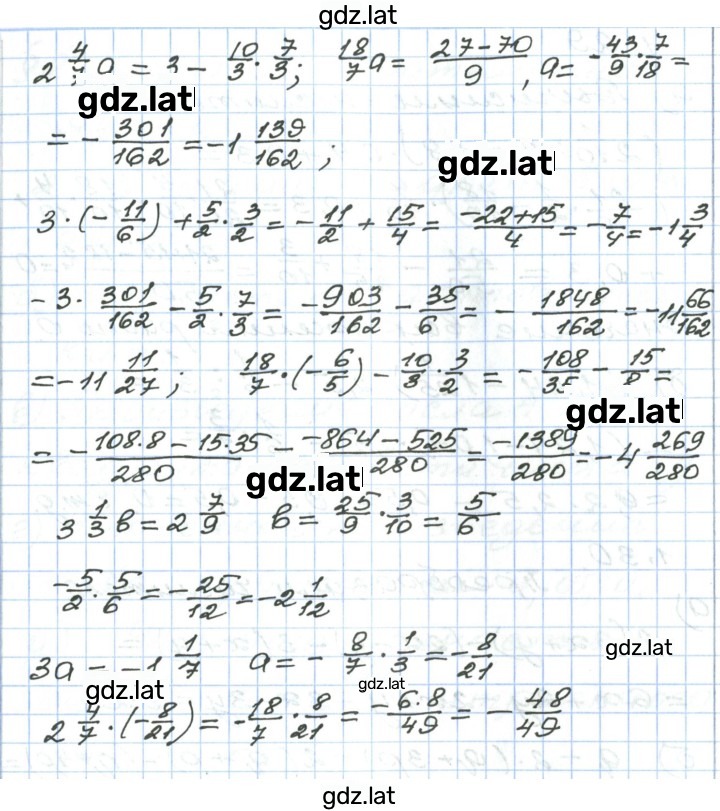 gdz.lat
2 4/7 a = 3 - 10/3 · 7/3; 18/7 a = 27-70/9, a = -43/9 · 7/18 =
gdz.lat
= - 301/162 = -1 139/162;
gdz.lat
3 · (-11/6) + 5/2 · 3/2 = -11/2 + 15/4 = -22+15/4 = -7/4 = -1 3/4
-3 · 301/162 - 5/2 · 7/3 = -903/162 - 35/6 = - 1848/162 = -11 66/162
= -11 11/27; 18/7 · (-6/5) - 10/8 · 3/2 = -108/35 - 15/8 =
gdz.lat
= -108·8 - 15·35/280 - -864 - 525/280 = -1389/280 = -4 269/280
gdz.lat
3 1/3 в = 2 7/9 в = 25/9 · 3/10 = 5/6
-5/2 · 5/6 = -25/12 = -2 1/12
3a - -1 1/7 a = - 8/7 · 1/3 = -8/21
gdz.lat
gdz.lat
gdz.lat
2 4/7 · (-8/21) = -18/7 · 8/21 = -6·8/49 = - 48/49
gdz.lat